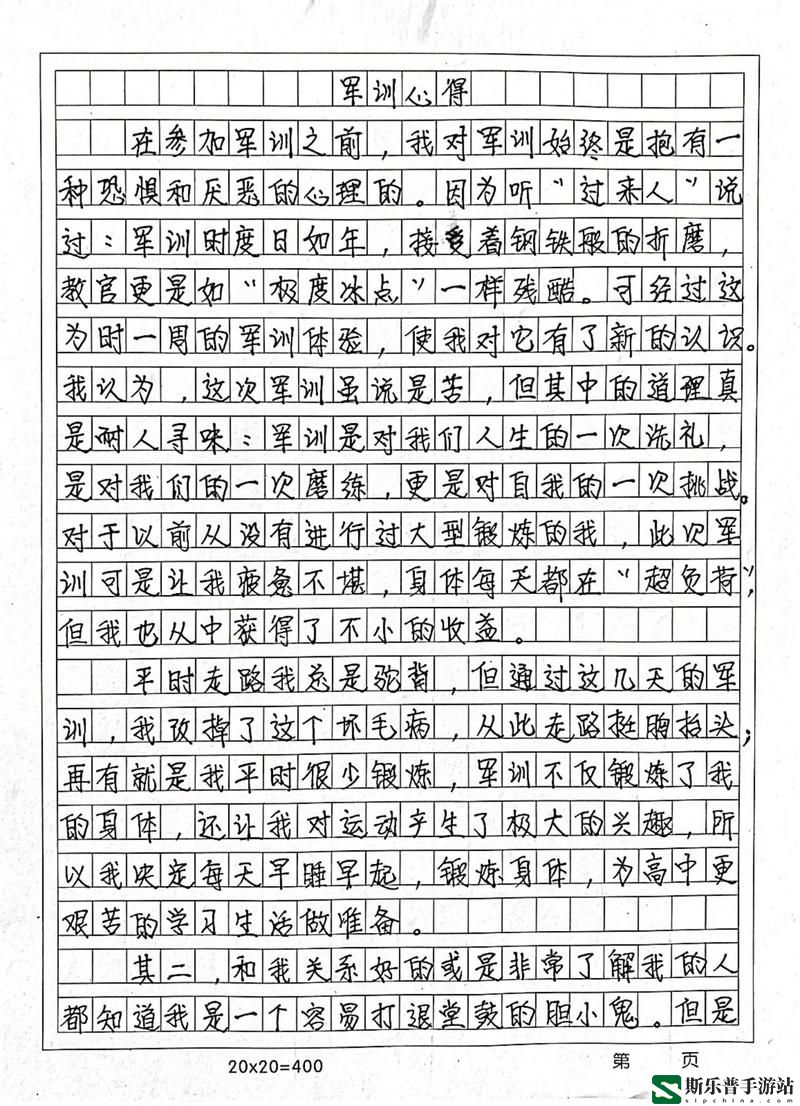 军训心得
在参加军训之前，我对军训始终是抱有一
种恐惧和厌恶的心理的。因为听“过来人”说
过：军训时度日如年，接受着钢铁般的折磨，
教官更是如“极度冰点”一样残酷。可经过这
为时一周的军训体验，使我对它有了新的认识。
我认为，这次军训虽说是苦，但其中的道理真
是耐人寻味：军训是对我们人生的一次洗礼，
是对我们的一次磨练，更是对自我的一次挑战。
对于以前从没有进行过大型锻炼的我，此次军
训可是让我疲惫不堪，身体每天都在“超负荷”，
但我也从中获得了不小的收益。
平时走路我总是驼背，但通过这几天的军
训，我改掉了这个坏毛病，从此走路挺胸抬头；
再有就是我平时很少锻炼，军训不仅锻炼了我
的身体，还让我对运动产生了极大的兴趣，所
以我决定每天早睡早起，锻炼身体，为高中更
艰苦的学习生活做准备。
其二，和我关系好的或是非常了解我的人
都知道我是一个容易打退堂鼓的胆小鬼。但是
20×20=400 第 页
斯乐普手游站
slpchina.com